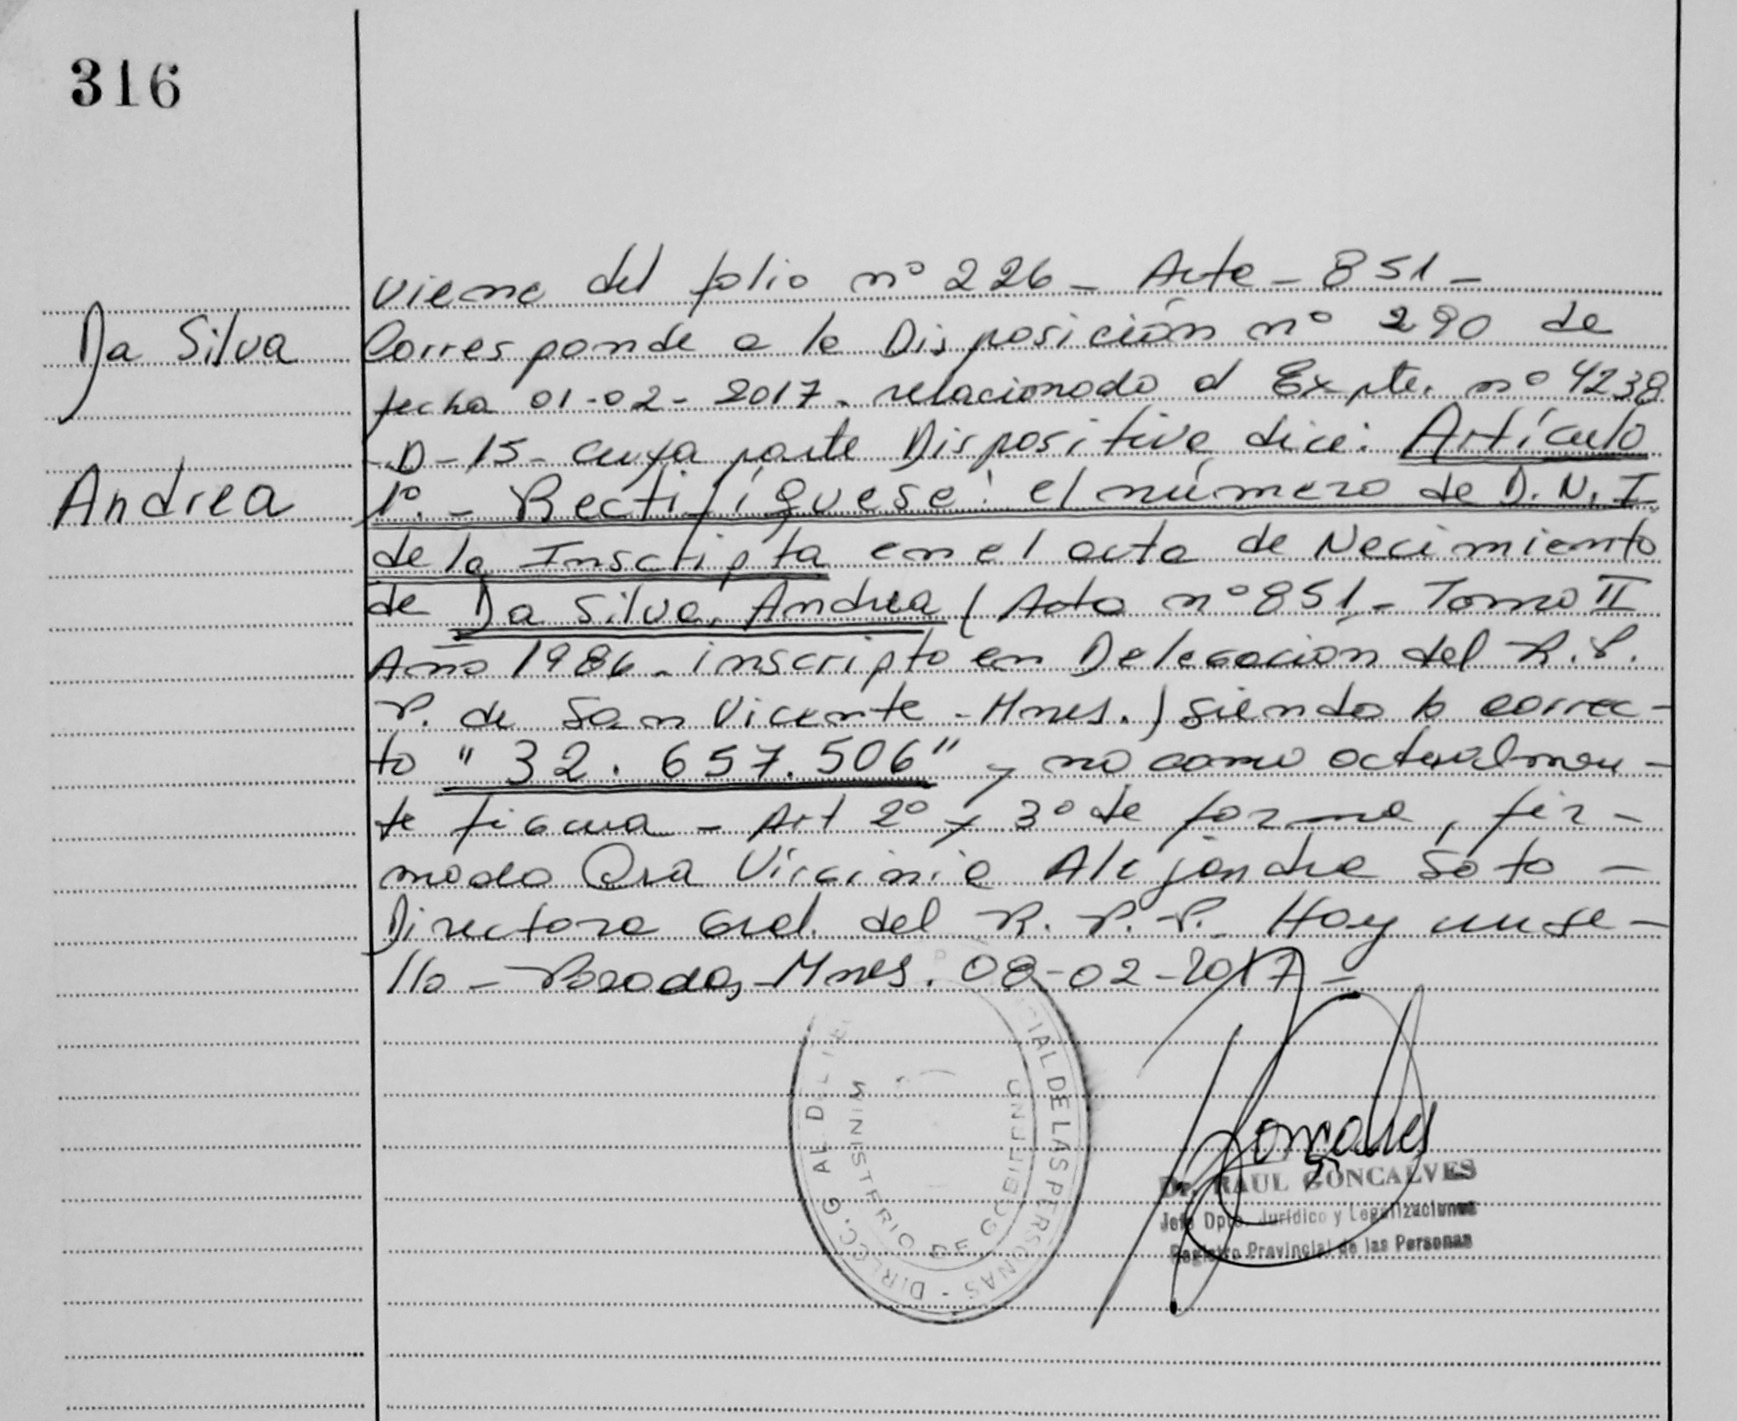 316
Da Silva
Andrea
Viene del folio nº 226 - Acta - 851 -
Corresponde a la Disposición nº 290 de
fecha 01-02-2017. relacionado al Expte. nº 4238
-D-15- cuya parte Dispositiva dice: Artículo
1º.- Rectifíquese: el número de D.N.I.
de la Inscripta en el acta de Nacimiento
de Da Silva, Andrea (Acta nº 851 - Tomo II
Año 1986 - inscripto en Delegación del R.P.
P. de San Vicente - Mnes.) siendo lo correc-
to "32.657.506" y no como actualmen-
te figura - Art 2º y 3º de forma, fir-
mado Dra Virginia Alejandra Soto -
Directora Gral. del R.P.P. Hoy un se-
llo - Posadas, Mnes. 08-02-2017 -
DIRECC. GRAL DEL
IAL DE LAS PERSONAS
MINISTERIO DE GOBIERNO
Goncalves
Dr. RAUL GONCALVES
Jefe Dpto. Jurídico y Legalizaciones
Registro Provincial de las Personas